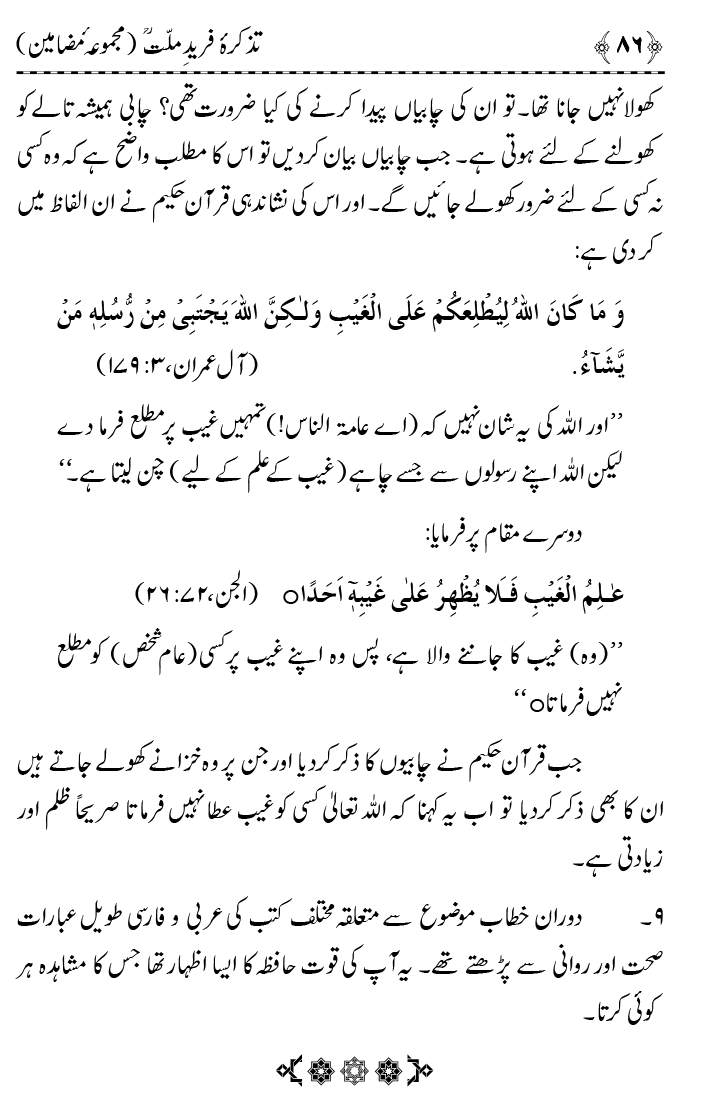 ﴿۸۶﴾ تذکرۂ فریدِ ملّتؒ (مجموعۂ مضامین)
کھولا نہیں جانا تھا۔ تو ان کی چابیاں پیدا کرنے کی کیا ضرورت تھی؟ چابی ہمیشہ تالے کو
کھولنے کے لئے ہوتی ہے۔ جب چابیاں بیان کر دیں تو اس کا مطلب واضح ہے کہ وہ کسی
نہ کسی کے لئے ضرور کھولے جائیں گے۔ اور اس کی نشاندہی قرآن حکیم نے ان الفاظ میں
کر دی ہے:
وَ مَا كَانَ اللهُ لِيُطْلِعَكُمْ عَلَى الْغَيْبِ وَلٰـكِنَّ اللهَ يَجْتَبِىْ مِنْ رُّسُلِهٖ مَنْ
يَّشَآءُ. (آل عمران، ۳: ۱۷۹)
’’اور اللہ کی یہ شان نہیں کہ (اے عامۃ الناس!) تمہیں غیب پر مطلع فرما دے
لیکن اللہ اپنے رسولوں سے جسے چاہے (غیب کے علم کے لیے) چن لیتا ہے۔‘‘
دوسرے مقام پر فرمایا:
عٰـلِمُ الْغَيْبِ فَـلَا يُظْهِرُ عَلٰى غَيْبِهٖٓ اَحَدًاo (الجن، ۷۲: ۲۶)
’’(وہ) غیب کا جاننے والا ہے، پس وہ اپنے غیب پر کسی (عام شخص) کو مطلع
نہیں فرماتاo‘‘
جب قرآن حکیم نے چابیوں کا ذکر کر دیا اور جن پر وہ خزانے کھولے جاتے ہیں
ان کا بھی ذکر کر دیا تو اب یہ کہنا کہ اللہ تعالیٰ کسی کو غیب عطا نہیں فرماتا صریحاً ظلم اور
زیادتی ہے۔
۹۔ دوران خطاب موضوع سے متعلقہ مختلف کتب کی عربی و فارسی طویل عبارات
صحت اور روانی سے پڑھتے تھے۔ یہ آپ کی قوت حافظہ کا ایسا اظہار تھا جس کا مشاہدہ ہر
کوئی کرتا۔